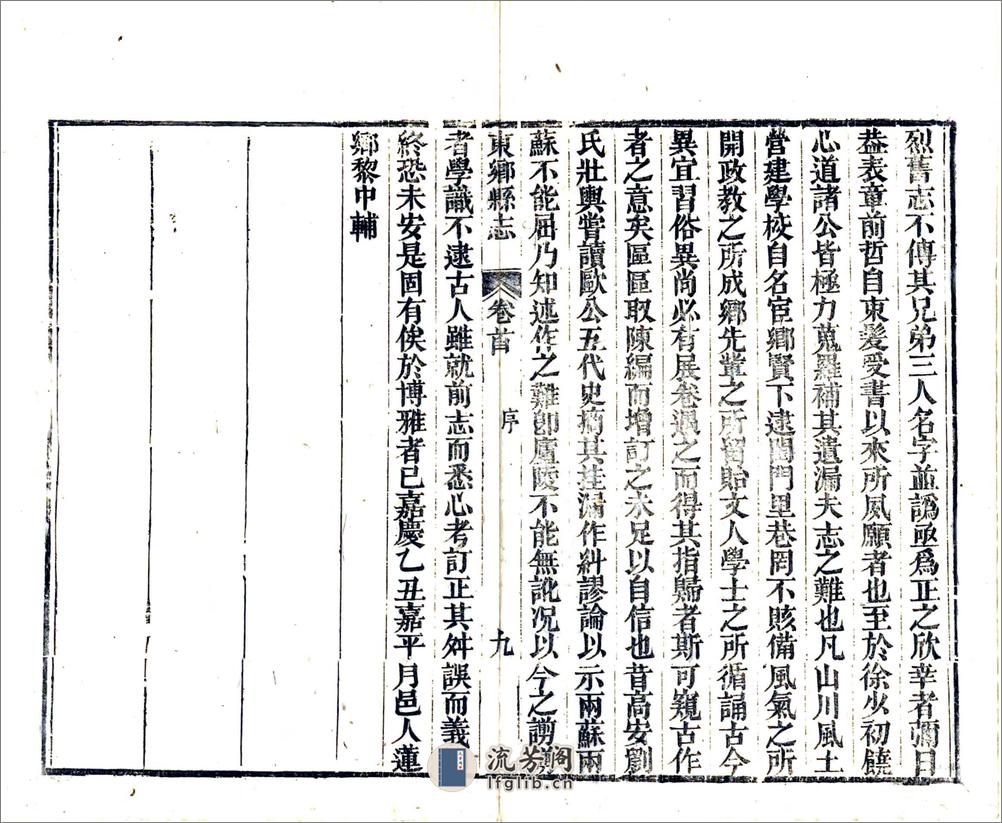 烈舊志不傳其兄弟三人名字並譌亟爲正之欣幸者彌日
葢表章前哲自束髮受書以來所夙願者也至於徐少初饒
心道諸公皆極力蒐羅補其遺漏夫志之難也凡山川風土
營建學校自名宦鄉賢下逮閨門里巷罔不賅備風氣之所
開政教之所成鄉先輩之所留貽文人學士之所循誦古今
異宜習俗異尚必有展卷遇之而得其指歸者斯可窺古作
者之意矣區區取陳編而增訂之未足以自信也昔高安劉
氏壯輿嘗讀歐公五代史摘其挂漏作糾謬論以示兩蘇兩
蘇不能屈乃知述作之難卽廬陵不能無訛况以今之謭
東鄉縣志 卷首 序 九
者學識不逮古人雖就前志而悉心考訂正其舛誤而義
終恐未安是固有俟於博雅者已嘉慶乙丑嘉平月邑人蓮
鄉黎中輔
流芳阁
lfglib.cn